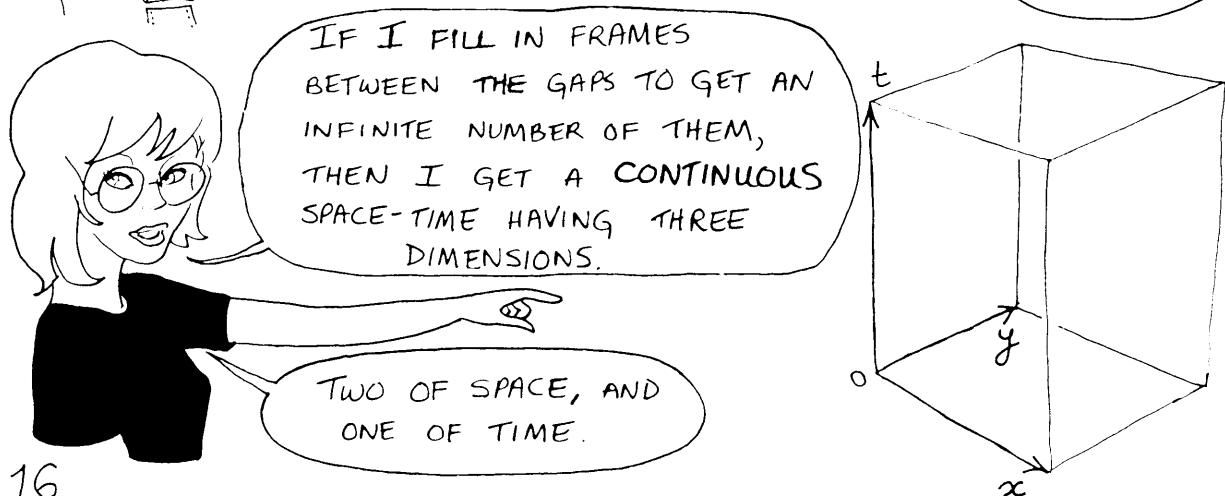 IF I FILL IN FRAMES
BETWEEN THE GAPS TO GET AN
INFINITE NUMBER OF THEM,
THEN I GET A CONTINUOUS
SPACE-TIME HAVING THREE
DIMENSIONS.
t
y
o
x
TWO OF SPACE, AND
ONE OF TIME.
16